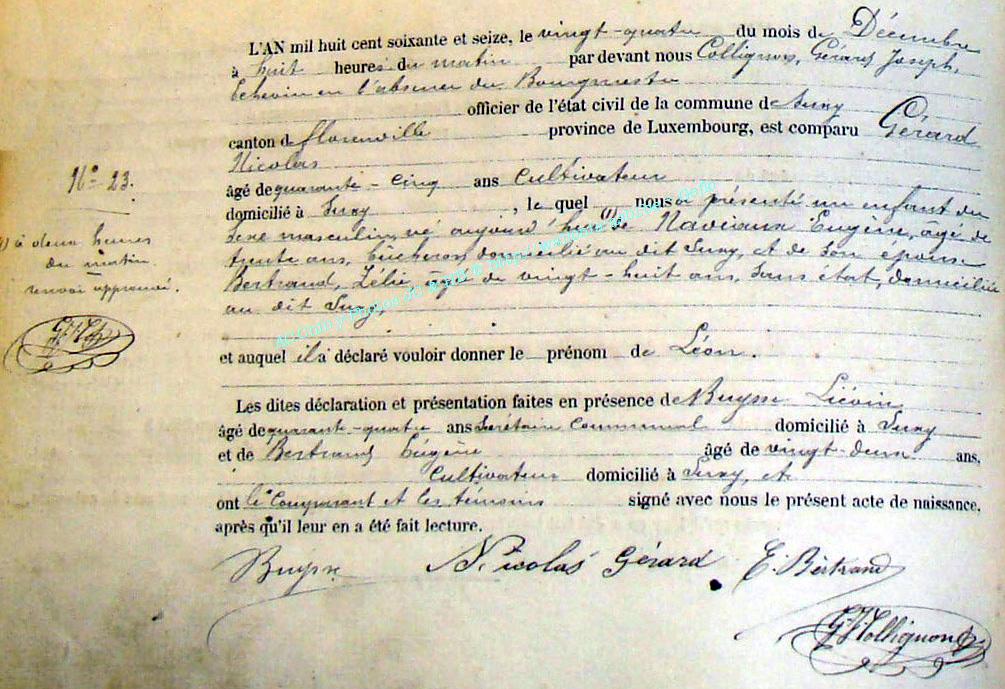 L'AN mil huit cent soixante et seize, le vingt-quatre du mois de Décembre
à huit heures du matin par devant nous Collignon, Gérard Joseph,
Echevin en l'absence du Bourgmestre
officier de l'état civil de la commune de Suxy
canton de Florenville province de Luxembourg, est comparu Gérard
Nicolas
âgé de quarante-cinq ans Cultivateur
domicilié à Suxy, le quel nous a présenté un enfant du
Sexe masculin, né aujourd'hui (1) de Naviaux Eugène, agé de
trente ans, bûcheron domicilié au dit Suxy, et de son épouse
Bertrand, Zélie, agée de vingt-huit ans, sans état, domiciliée
au dit Suxy,
et auquel il a déclaré vouloir donner le prénom de Léon.
Les dites déclaration et présentation faites en présence de Buysse Liévin
âgé de quarante-quatre ans Secrétaire Communal domicilié à Suxy
et de Bertrand Eugène âgé de vingt-deux ans,
Cultivateur domicilié à Suxy, et
ont le Comparant et les témoins signé avec nous le présent acte de naissance,
après qu'il leur en a été fait lecture.
Buysse Nicolas Gérard E. Bertrand
Collignon
N° 23.
(1) à deux heures
du matin.
renvoi approuvé.